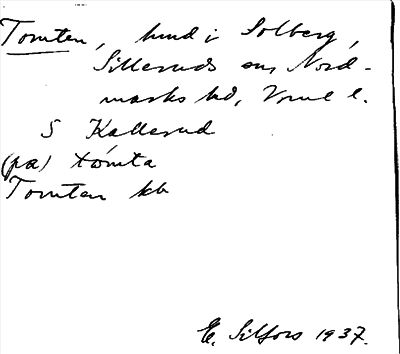 Tomten, hmd i Solberg,
Silleruds sn, Nord-
marks hd, Vrml l.
S Kallerud
(pa) tómta
Tomten kb
E. Silfors 1937.